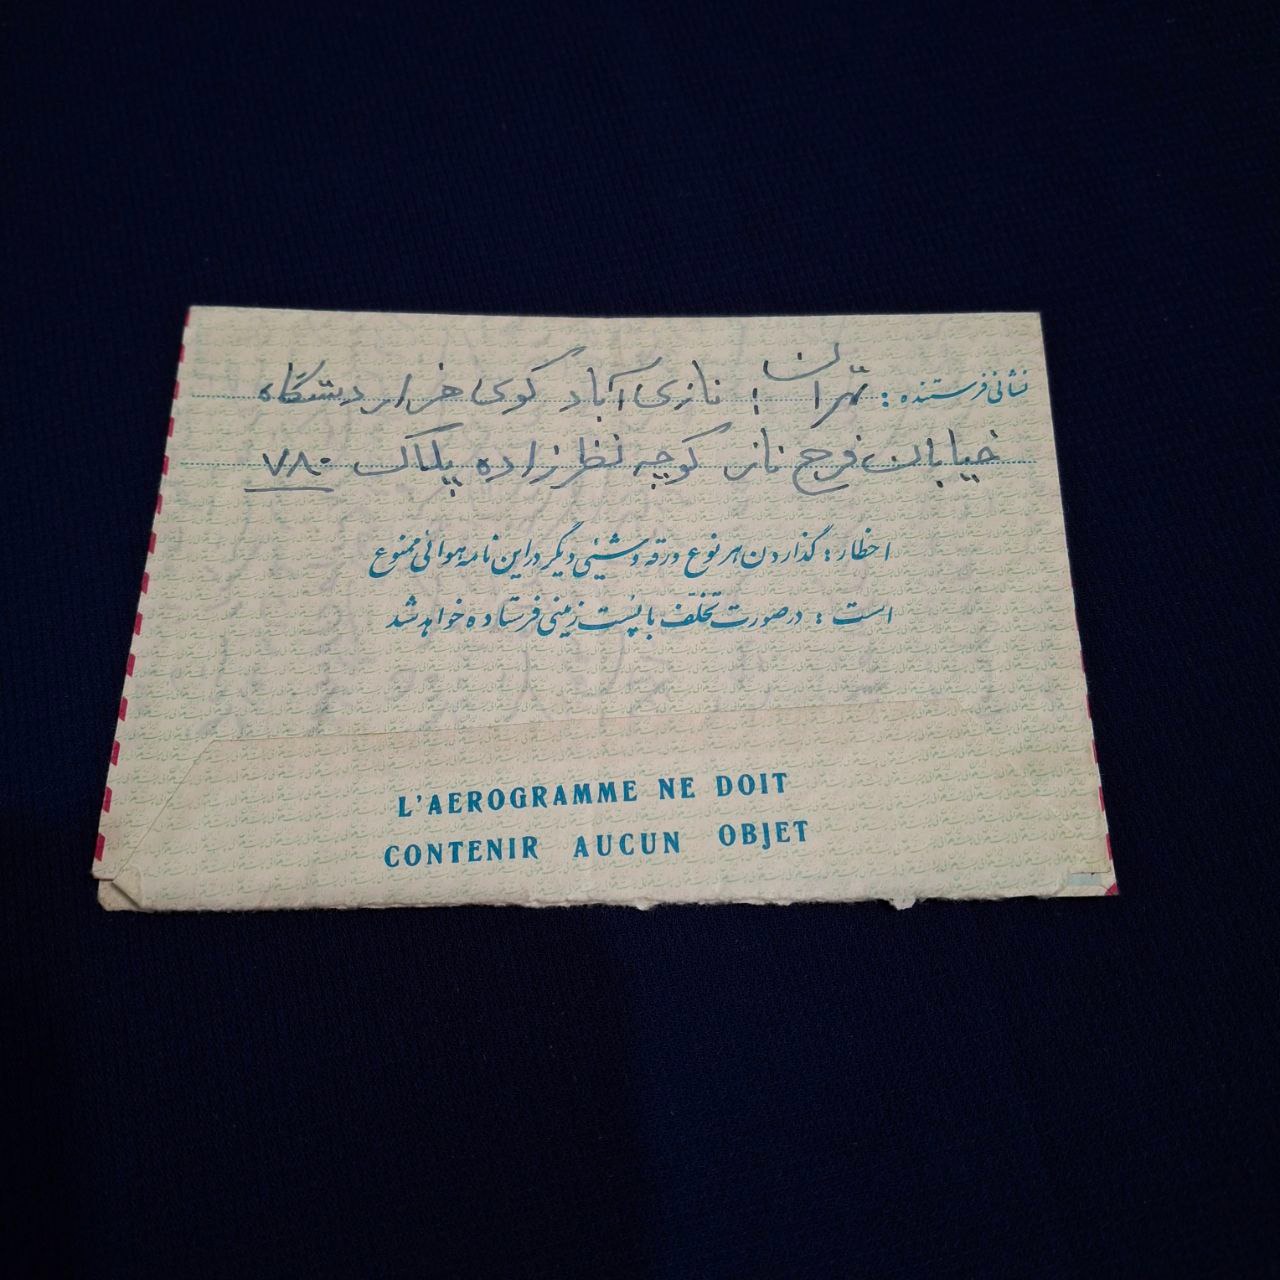 نشانی فرستنده : تهران ؛ نازی آباد کوی هزار دستگاه
خیابان فرح ناز کوچه نظرزاده پلاک ۷۸۰
اخطار : گذاردن هر نوع ورقه و شیئی دیگر در این نامه هوائی ممنوع
است : در صورت تخلّف با پست زمینی فرستاده خواهد شد
L'AEROGRAMME NE DOIT
CONTENIR AUCUN OBJET